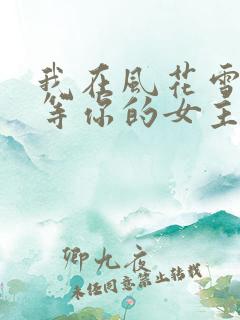 我在风花雪
等你的女主
卿九夜
未经同意禁止转载